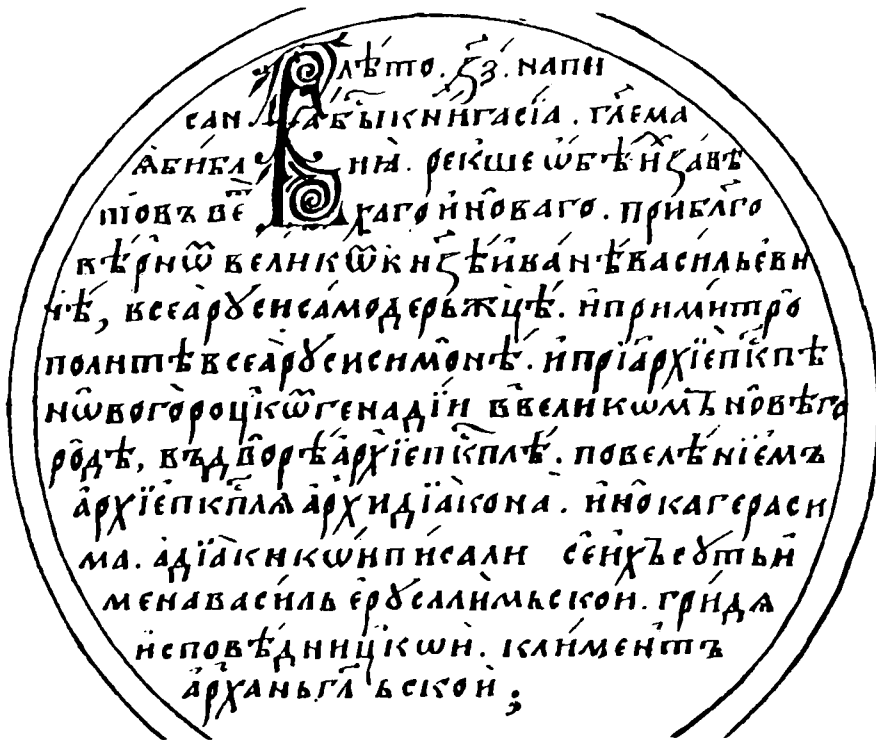 Въ лѣто. ҂зз҃. напи
сана бы́ кни́га сїа̀. гл҃ема
ѧ би́блиа̀. ре́кше ѡ҆бѣи́х завѣ
товъ ве́тхаго и҆ но́ваго. при бл҃го
вѣ́рнѡⷨ вели́кѡⷨ кн҃зѣ и҆ва́нѣ васи́льеви
чѣ, всеа̀ рꙋси самоде́рьжцѣ. и҆ при митро
поли́тѣ всеа̀ рꙋси си́монѣ. и҆ при а҆рхїепⷭ҇кпѣ
нѡвогоро́цкѡⷨ генадїи в вели́кѡмъ но́вѣго
родѣ, въ дворѣ̀ а҆рхїепⷭ҇кплѣ. повелѣ́нїемъ
а҆рхїепкⷭ҇плѧ а҆рхидїа́кона. и҆нока гераси
ма. а҆ дїа́ки кѡ́и писали се́ и҆́хъ сꙋть и҆
мена васи́ль е҆рꙋсали́мьскои. гри́дѧ
и҆сповѣ́дницкѡи. кли́ментъ
а҆рха́ньгл҃ьскои;